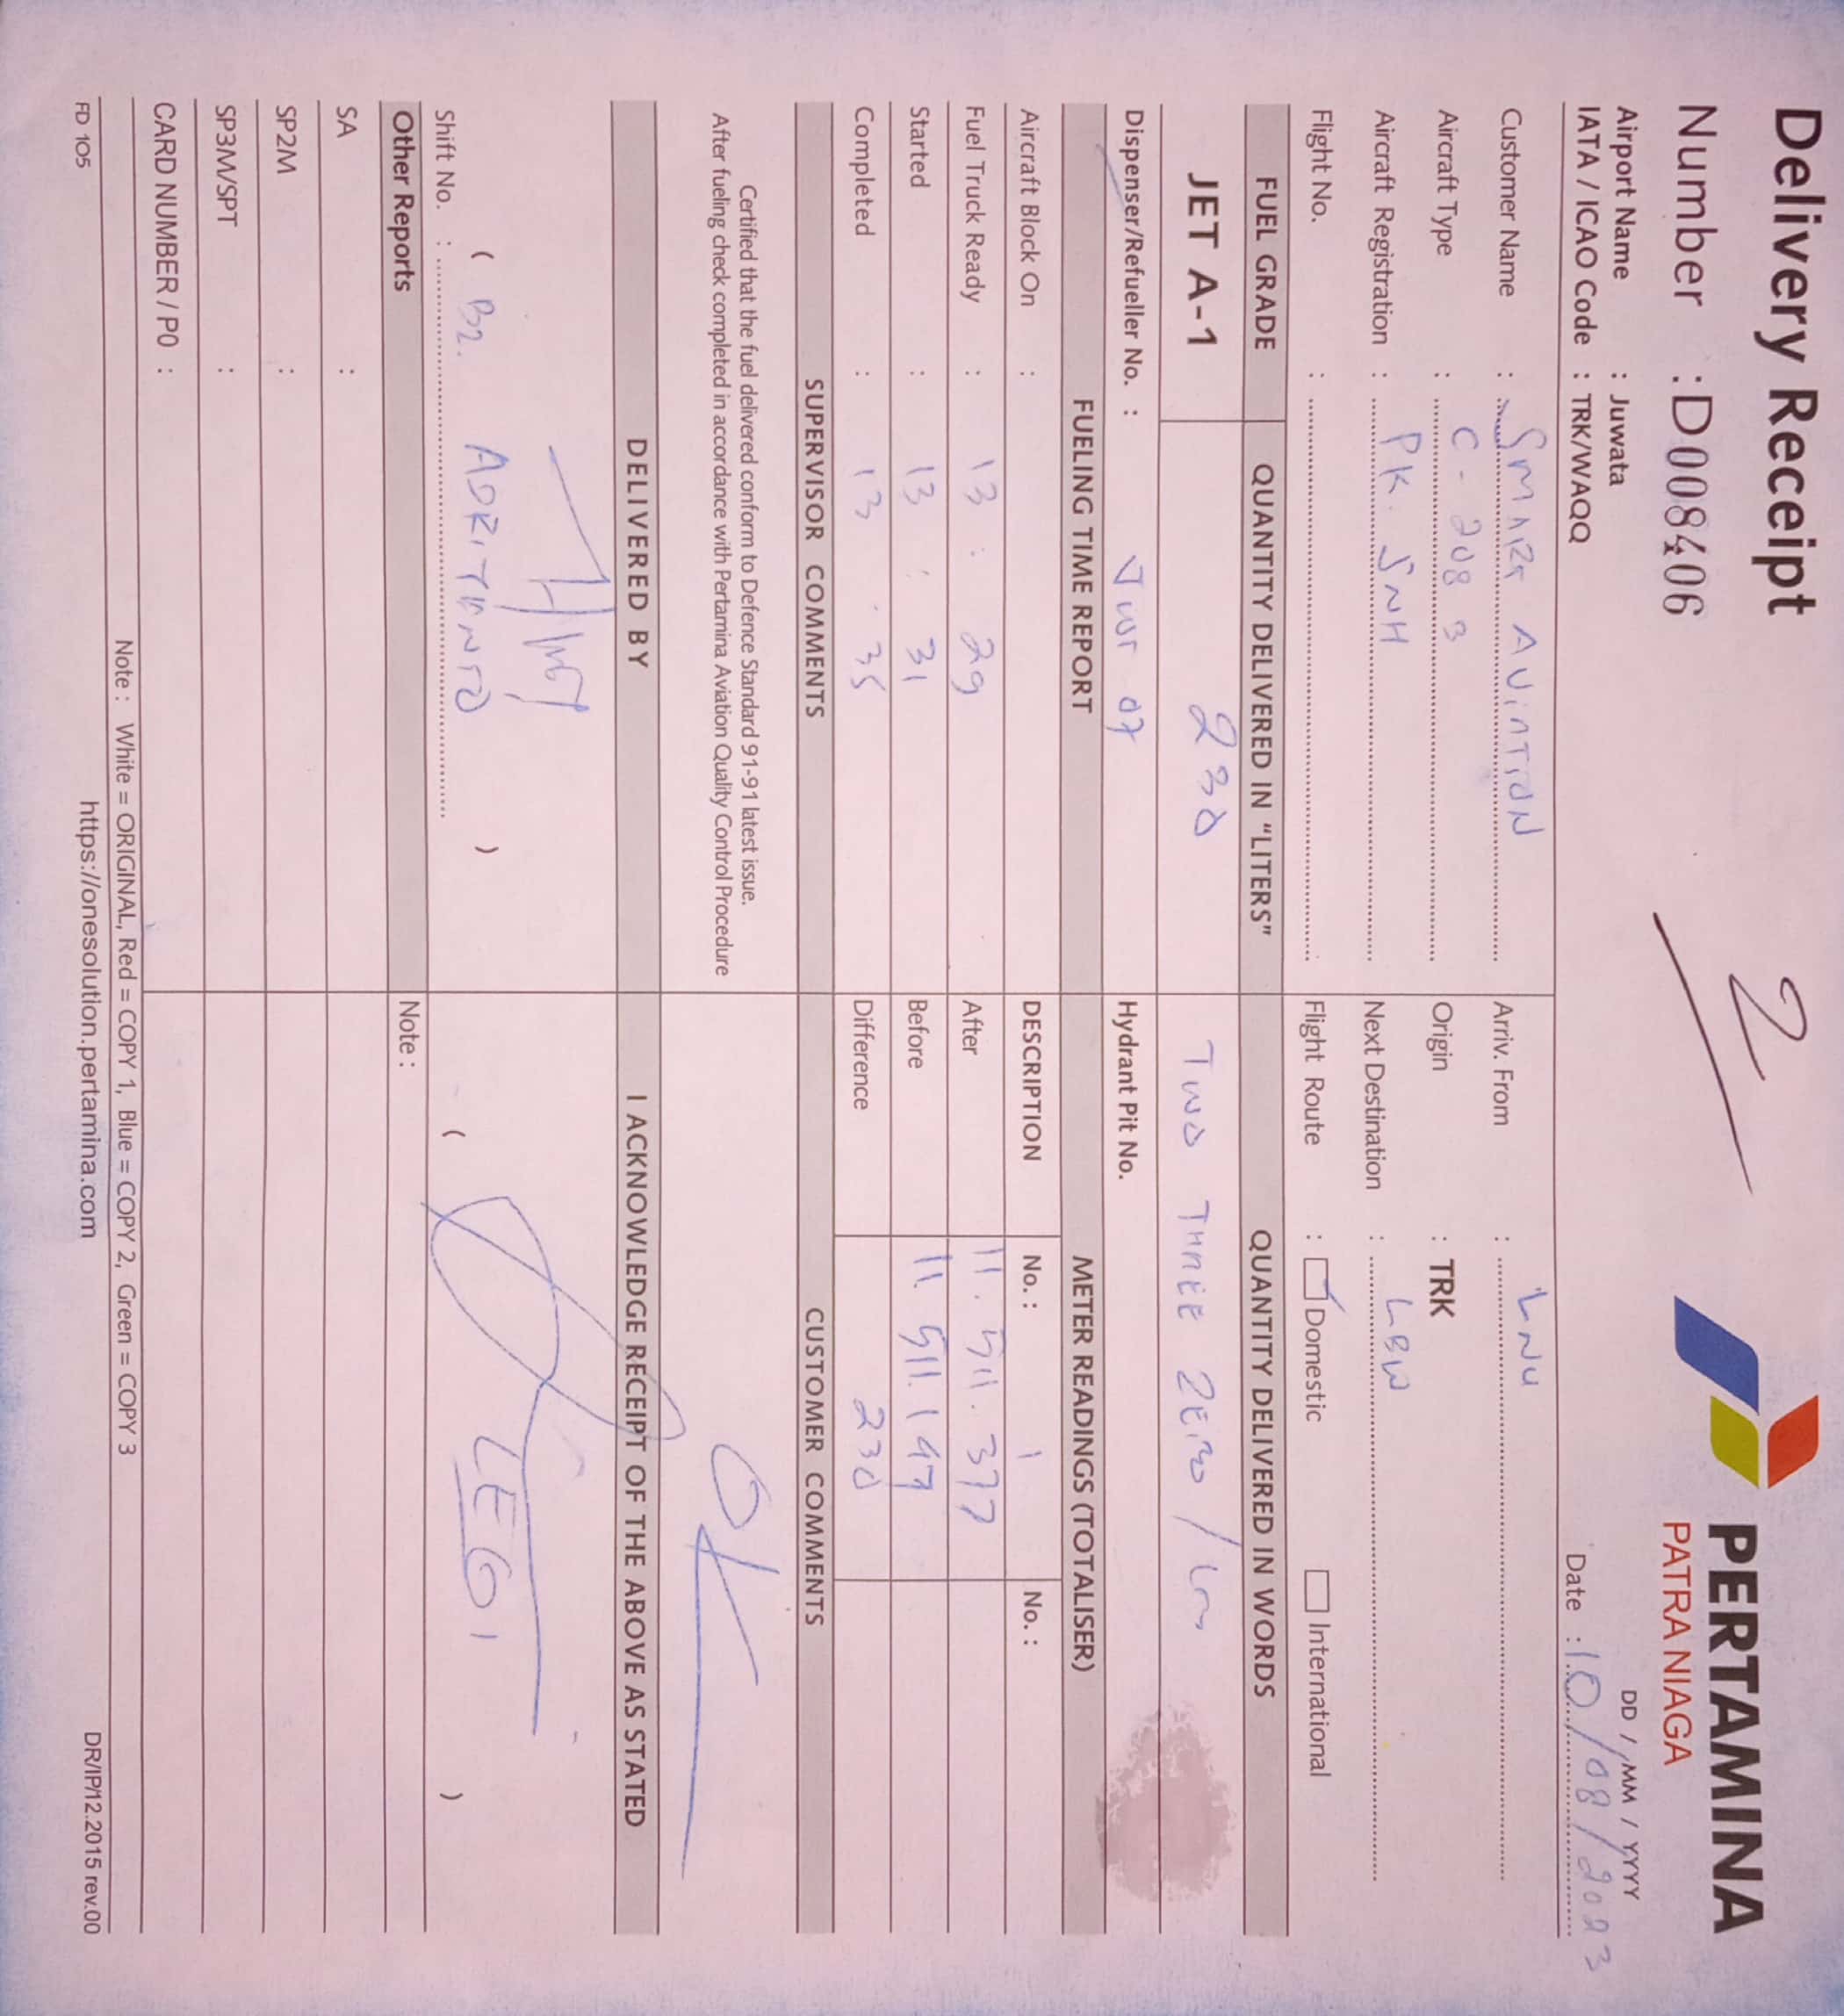 Delivery Receipt
Number : D008406
2
PERTAMINA
PATRA NIAGA
Airport Name : Juwata
IATA / ICAO Code : TRK/WAQQ
DD / MM / YYYY
Date : 10/08/2023
Customer Name : SMART AVIATION
Arriv. From : LNU
Aircraft Type : C-208 B
Origin : TRK
Aircraft Registration : PK. SNH
Next Destination : LBW
Flight No. :
Flight Route : Domestic International
FUEL GRADE QUANTITY DELIVERED IN "LITERS" QUANTITY DELIVERED IN WORDS
JET A-1 230 TWO THREE ZERO /
Dispenser/Refueller No. : 07 Hydrant Pit No.
FUELING TIME REPORT METER READINGS (TOTALISER)
Aircraft Block On : DESCRIPTION No. : 1 No. :
Fuel Truck Ready : 13 : 29 After 11.511.377
Started : 13 : 31 Before 11.511.147
Completed : 13 : 35 Difference 230
SUPERVISOR COMMENTS CUSTOMER COMMENTS
Certified that the fuel delivered conform to Defence Standard 91-91 latest issue.
After fueling check completed in accordance with Pertamina Aviation Quality Control Procedure
OK
DELIVERED BY I ACKNOWLEDGE RECEIPT OF THE ABOVE AS STATED
( B2. ADRIYANTO ) ( LEGI )
Shift No. :
Other Reports Note :
SA :
SP2M :
SP3M/SPT :
CARD NUMBER / PO :
Note : White = ORIGINAL, Red = COPY 1, Blue = COPY 2, Green = COPY 3
FD 105 https://onesolution.pertamina.com DR/IP/12.2015 rev.00